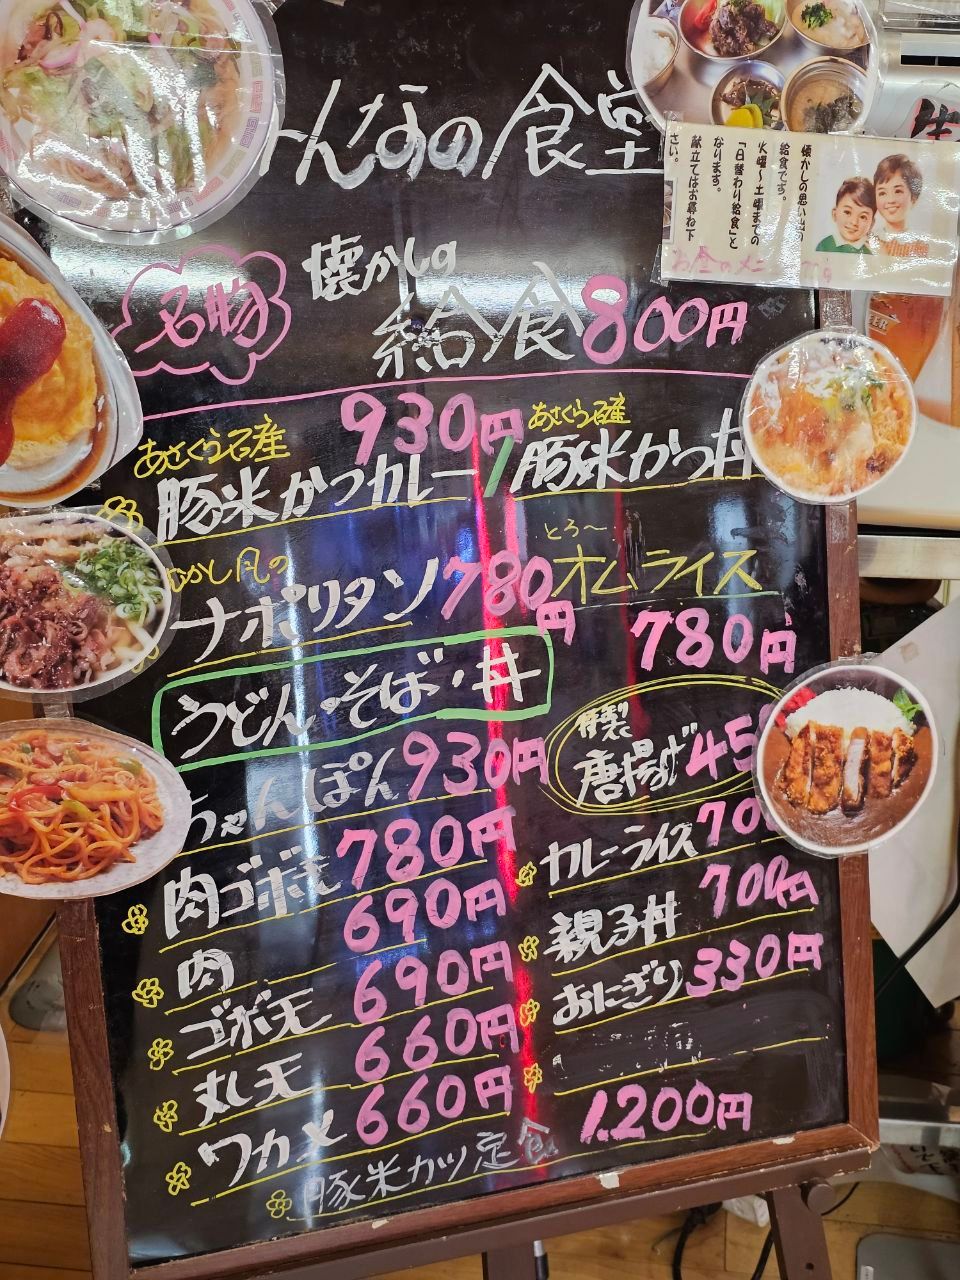 んなの食堂
懐かしの思い出の
給食です。
火曜～土曜までの
「日替わり給食」と
なります。
献立てはお尋ね下
さい。
名物
懐かしの
給食 800円
930円
あさくら石産
豚米かつカレー/
あさくら石産
豚米かつ丼
むかし風の
ナポリタン 780円
とろ～
オムライス
780円
うどん・そば・丼
特製
唐揚げ 45
ちゃんぽん 930円
カレーライス 700
肉ゴボ天 780円
親子丼 700円
肉 690円
おにぎり 330円
ゴボ天 690円
丸天 660円
ワカメ 660円
豚米カツ定食 1.200円